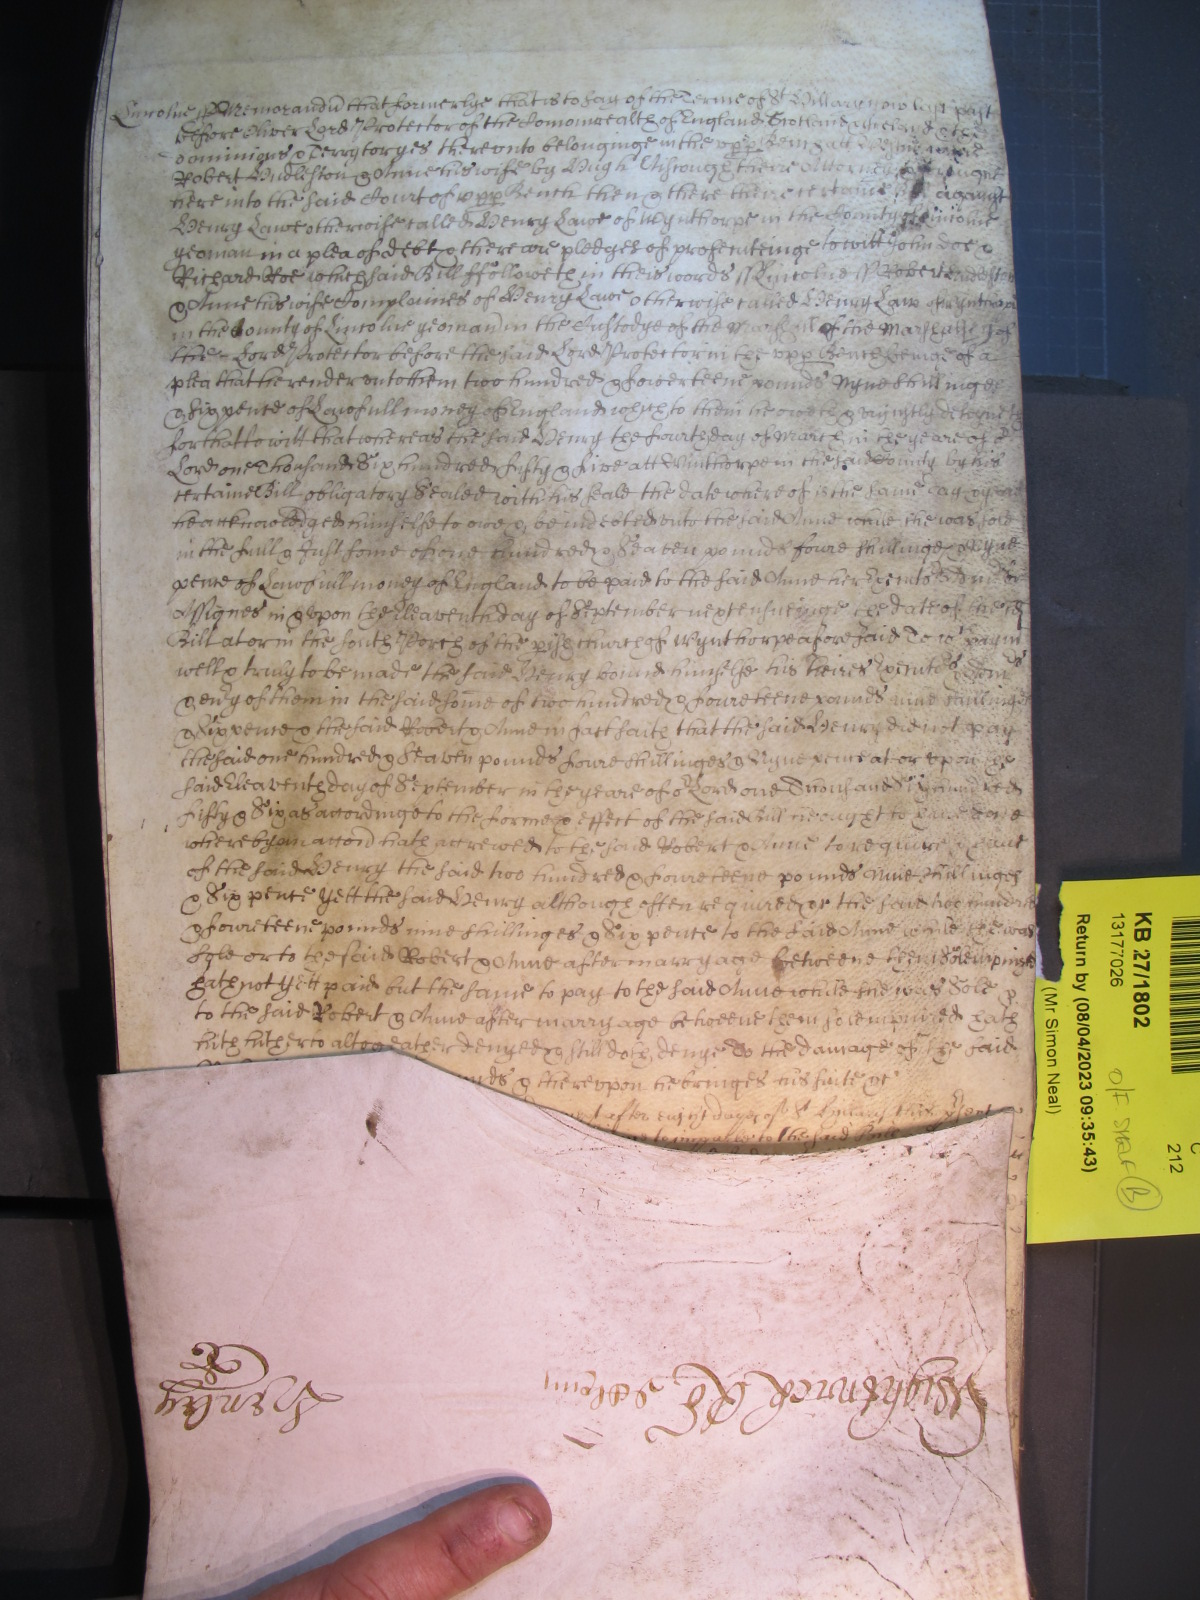 Lincolne ss Memorandu that formerlye that is to say of the Terme of St Hillary now last past
before Oliver Lord Protector of the Comonwealth of England Scotland & Ireland & the
dominions & Terrytoryes thereunto belonginge in the upp Bench att
Robert Hudleston & Anne his wife by Hugh Aiscough theire Attorney
here into the said Court of upp Bench then & there their certaine Bill against
Henry Lawe otherwise called Henry Lawe of Wynthorpe in the County of Lincolne
yeoman in a plea of debt & there are pledges of prosecuteinge to witt John Doe &
Richard Roe which said Bill ffolloweth in theis words ss Lincolne ss Robert
& Anne his wife Complaines of Henry Lawe otherwise called Henry Lawe of
in the County of Lincolne yeoman in the Custodye of the Marshall of the Marshalsye of
the Lord Protector before the said Lord Protector in the upp Bench beinge of a
plea that he render unto them two hundred & fower teene pounds Nyne shillinges
& six pence of Lawfull money of England which to them he oweth & unjustly deteyneth
for that to witt that whereas the said Henry the fourth day of March in the yeare of or
Lord one Thousand Six hundred fifty & five att Winthorpe in the said County by his
certaine Bill obligatory Sealed with his seale the date whereof is the same day & yeare
he acknowledged himselfe to owe & be indebted unto the said Anne while she was sole
in the full & Just some of one hundred & Seaven pounds foure shillinges & Nyne
pence of Lawfull money of England to be paid to the said Anne her
Assignes in & upon the Eleaventh day of September next ensueinge the date of the sd
Bill at or in the South Porch of the pish church of Wynthorpe aforesaid To wch paymt
well & truly to be made the said Henry bound himselfe his heires
& eny of them in the said some of two hundred & foureteene pounds nine shillinges
& Six pence & the said Robert & Anne in fact saith that the said Henry did not pay
the said one hundred & Seaven pounds foure shillinges & Nyne pence at or upon the
said Eleaventh day of September in the yeare of or Lord one Thousand Six hundred
fifty & Six as accordinge to the forme & effect of the said Bill he ought to have done
whereby an accon hath accrewed to the said Robert & Anne to require & have
of the said Henry the said two hundred & foureteene pounds Nine shillinges
& Six pence Yett the said Henry although often required & the said two hundred
& foureteene pounds nine shillinges & Six pence to the said Anne while she was
Sole or to the said Robert & Anne after marryage betweene them Solempnized
hath not yett paid but the same to pay to the said Anne while she was Sole &
to the said Robert & Anne after marryage betweene them solempnized hath
hitherto altogeather denyed & still doth denye To the damage of the said
& thereupon he bringes his suite &c
after
to the said
KB 27/1802
13177026
Return by (08/04/2023 09:35:43)
(Mr Simon Neal)
212
O/F Staff B
Wightwick